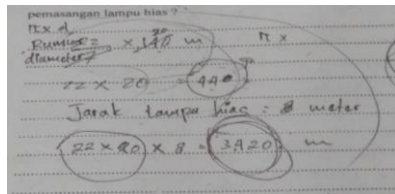 pemasangan lampu hias ?
π x d
Rumus = x 140 m π x
diameter
20
22 x 20 = 440
Jarak lampu hias : 8 meter
22 x 20 x 8 = 3420 m